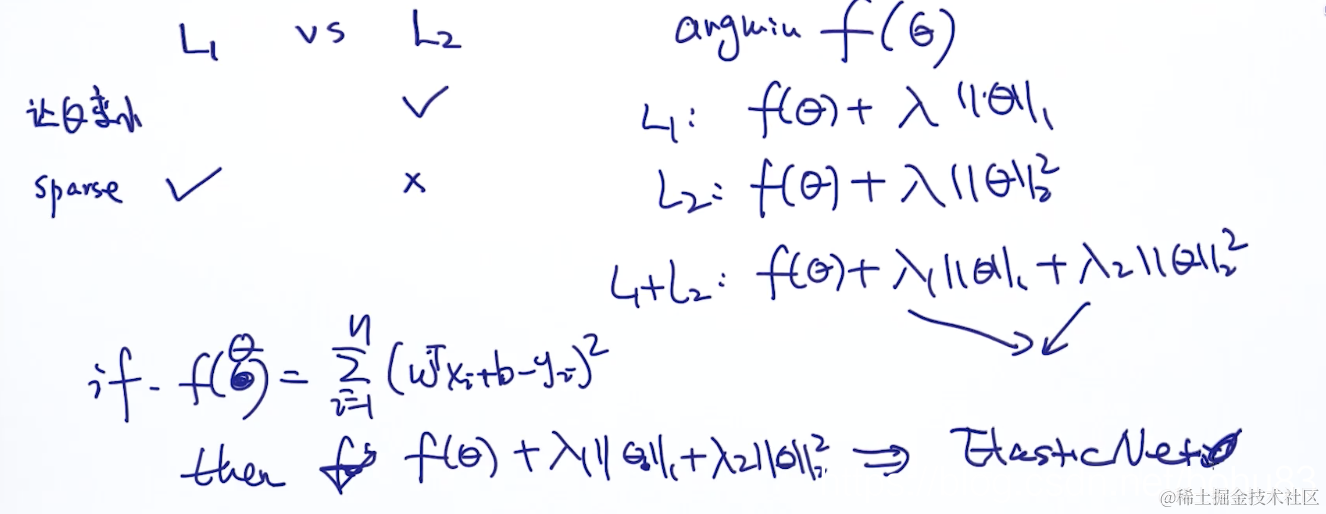 L₁ vs L₂
让θ变小 ✓
sparse ✓ ×
argmin f(θ)
L₁: f(θ) + λ ||θ||₁
L₂: f(θ) + λ ||θ||₂²
L₁+L₂: f(θ) + λ₁||θ||₁ + λ₂||θ||₂²
if. f(θ) = ∑ᵢ₌₁ⁿ (wᵀxᵢ+b-yᵢ)²
then f(θ) + λ₁||θ||₁ + λ₂||θ||₂² ⇒ ElasticNet
@稀土掘金技术社区